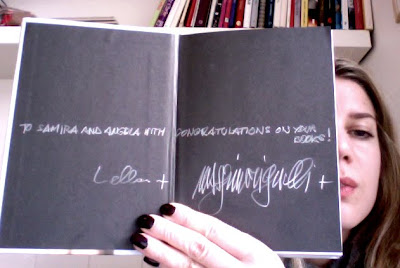 TO SAMIRA AND ANGELA WITH CONGRATULATIONS ON YOUR
BOOKS!
Lella + massimo vignelli +